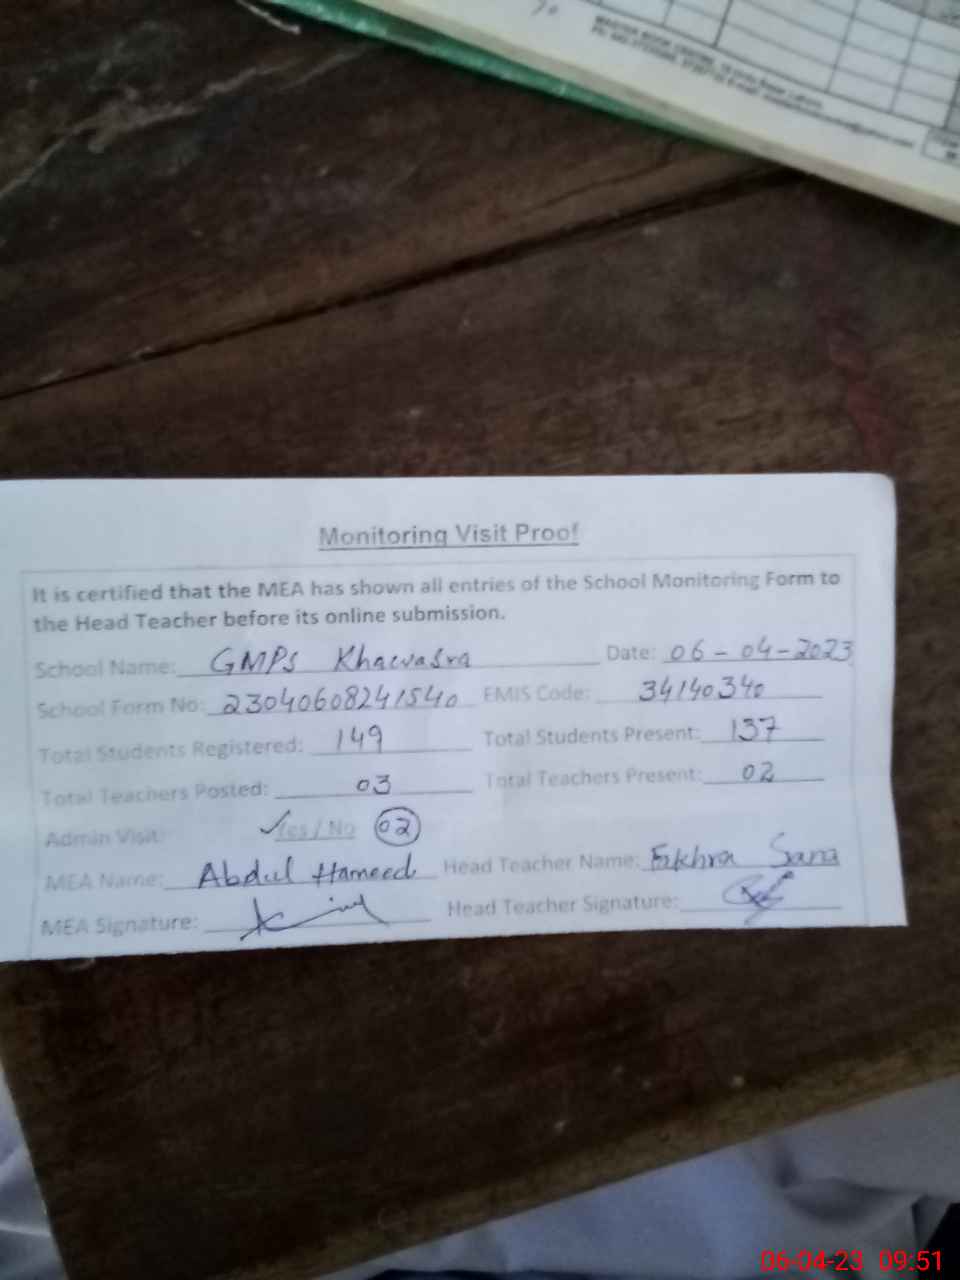 Monitoring Visit Proof
It is certified that the MEA has shown all entries of the School Monitoring Form to
the Head Teacher before its online submission.
School Name: GMPS Khawasra Date: 06-04-2023
School Form No: 23040608241540 EMIS Code: 34140340
Total Students Registered: 149 Total Students Present: 137
Total Teachers Posted: 03 Total Teachers Present: 02
Admin Visit: ✓Yes / No 02
MEA Name: Abdul Hameed Head Teacher Name: Fakhra Sana
MEA Signature: Head Teacher Signature:
06-04-23 09:51